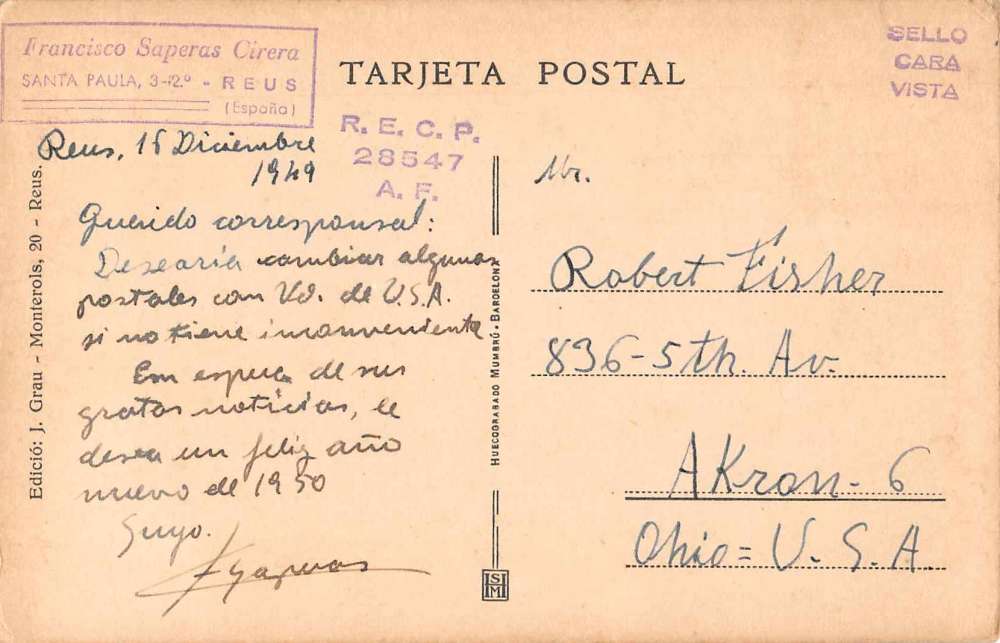 Francisco Saperas Cirera
SANTA PAULA, 3-2.º - REUS
(España)
TARJETA POSTAL
SELLO
CARA
VISTA
R. E. C. P.
28547
A. F.
Reus, 16 Diciembre
1949
Querido corresponsal:
Desearía cambiar algunas
postales con Vd. de U.S.A.
si no tiene inconveniente
En espera de sus
gratas noticias, le
desea un feliz año
nuevo de 1950
Suyo.
FSaperas
Edició: J. Grau - Monterols, 20 - Reus.
HUECOGRABADO MUMBRÚ - BARCELONA
Mr.
Robert Fisher
836-5th. Av.
AKron - 6
Ohio = U. S. A.